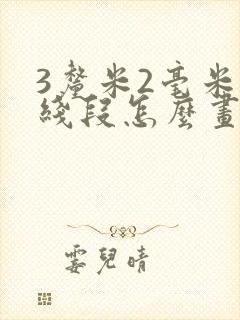 3釐米2毫米
綫段怎麼畫
雲兒晴